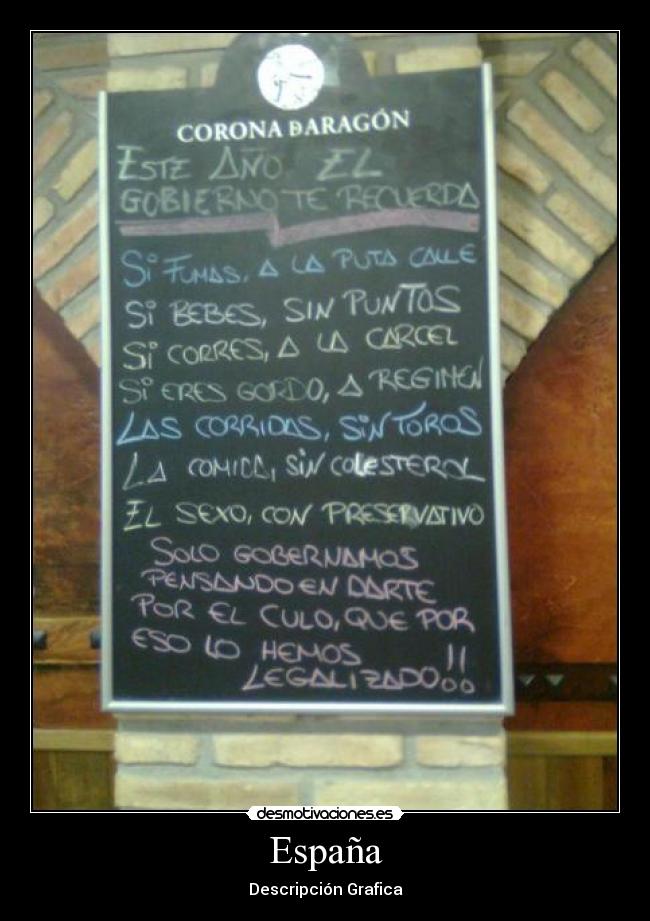 CORONA DARAGÓN
ESTE AÑO EL
GOBIERNO TE RECUERDA
Si FUMAS, A LA PUTA CALLE
Si BEBES, SIN PUNTOS
Si CORRES, A LA CARCEL
Si ERES GORDO, A REGIMEN
LAS CORRIDAS, SiN TOROS
LA COMIDA, SiN COLESTEROL
EL SEXO, CON PRESERVATIVO
SOLO GOBERNAMOS
PENSANDO EN DARTE
POR EL CULO, QUE POR
ESO LO HEMOS
LEGALIZADO!!
desmotivaciones.es
España
Descripción Grafica